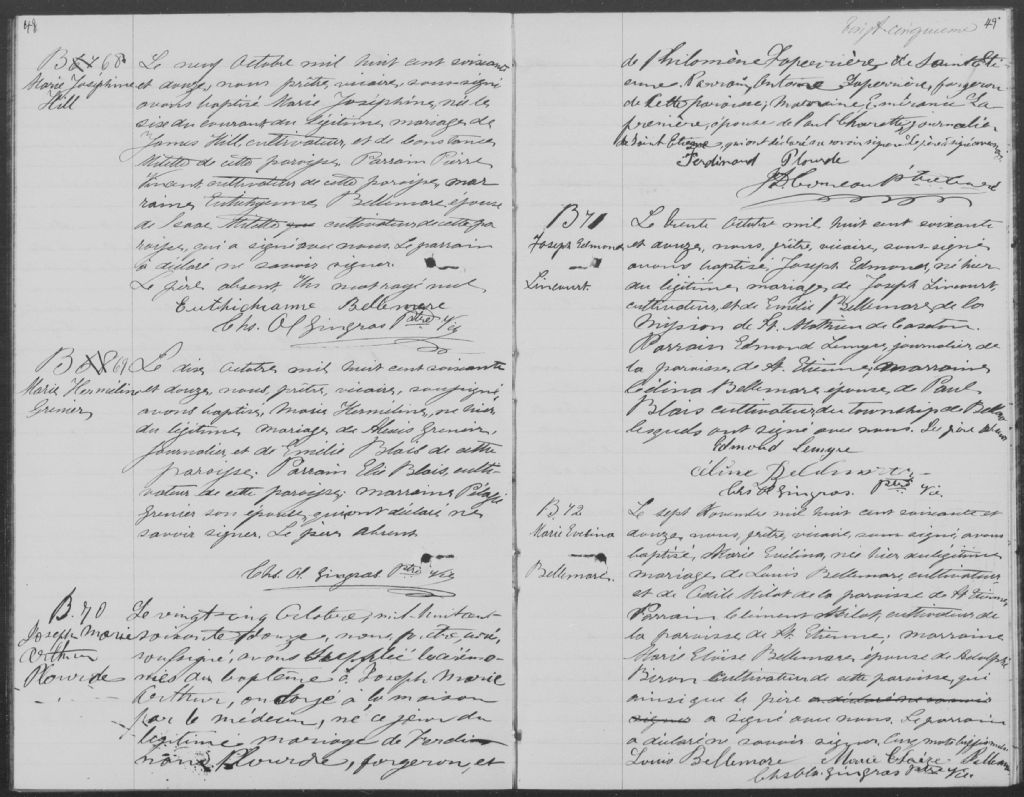 48
B 68
Marie Joséphine
Hill
Le neuf Octobre mil huit cent soixante
et douze, nous, prêtre, vicaire, soussigné
avons baptisé Marie Joséphine, née le
six du courant du légitime mariage de
James Hill, cultivateur, et de Constance
Milette de cette paroisse. Parrain Pierre
Vincent cultivateur de cette paroisse, mar
raine Bellemare, épouse
de Isaac Milette cultivateur de cette pa
roisse, qui a signé avec nous. Le parrain
a déclaré ne savoir signer.
Le père absent. mot rayé nul
Euthichianne Bellemare
Chs. Ol Gingras Ptre Vic
B 69
Marie Herméline
Grenier
Le dix Octobre mil huit cent soixante
et douze, nous, prêtre, vicaire, soussigné,
avons baptisé, Marie Herméline, née hier
du légitime mariage de Alexis Grenier,
journalier, et de Emélie Blais de cette
paroisse. Parrain Elie Blais, culti-
vateur de cette paroisse; marraine Pélagie
Grenier son épouse, qui ont déclaré ne
savoir signer. Le père absent
Chs. Ol. Gingras Ptre Vic
B. 70
Joseph Marie
Arthur
Plourde
Le vingt cinq Octobre, mil huit cent
soixante douze, nous, prêtre, curé,
soussigné, avons suppléé les cérémo-
nies du baptême à Joseph Marie
Arthur, ondoyé à la maison
par le médecin, né ce jour du
légitime mariage de Ferdi
nand Plourde, forgeron, et
Vingt-cinquième
49
de Philomène Laperrière de Saint Eti
enne. Parrain, Antoine Laperrière, forgeron
de cette paroisse; Marraine, Emérance La
perrière, épouse de Paul Charette, journalier
de Saint Etienne, qui ont déclaré ne savoir signer. Le père signe avec nous.
Ferdinand Plourde
J. D. Comeau Ptre Curé
B 71
Joseph Edmond
Lincourt.
Le trente Octobre mil huit cent soixante
et douze, nous, prêtre, vicaire, sous signé
avons baptisé, Joseph Edmond, né hier
du légitime mariage, de Joseph Lincourt,
cultivateur, et de Emélie Bellemare, de la
Mission de St. Mathieu de Caxton.
Parrain Edmond Lemyre, journalier de
la paroisse, de St. Etienne; marraine
Célina Bellemare épouse, de Paul
Blais cultivateur du township de
lesquels ont signé avec nous. Le père absent
Edmond Lemyre
Céline Bellmare
Chs Ol Gingras. Ptre Vic.
B. 72
Marie Evelina
Bellemare.
Le sept Novembre mil huit cent soixante et
douze, nous, prêtre, vicaire, sous signé, avons
baptisé, Marie Evélina, née hier du légitime
mariage, de Louis Bellemare, cultivateur
et de Cédile Milot de la paroisse de St. Etienne.
Parrain Clément Milot, cultivateur de
la paroisse de St. Etienne; marraine
Marie Eloïse Bellemare, épouse de Adolphe
Biron cultivateur de cette paroisse, qui
ainsi que le père a déclaré ne savoir
signer a signé avec nous. Le parrain
a déclaré ne savoir signer. Cinq mots biffés nuls
Louis Bellemare Marie Eloize Bellemare
Chs Ol. Gingras Ptre Vic.